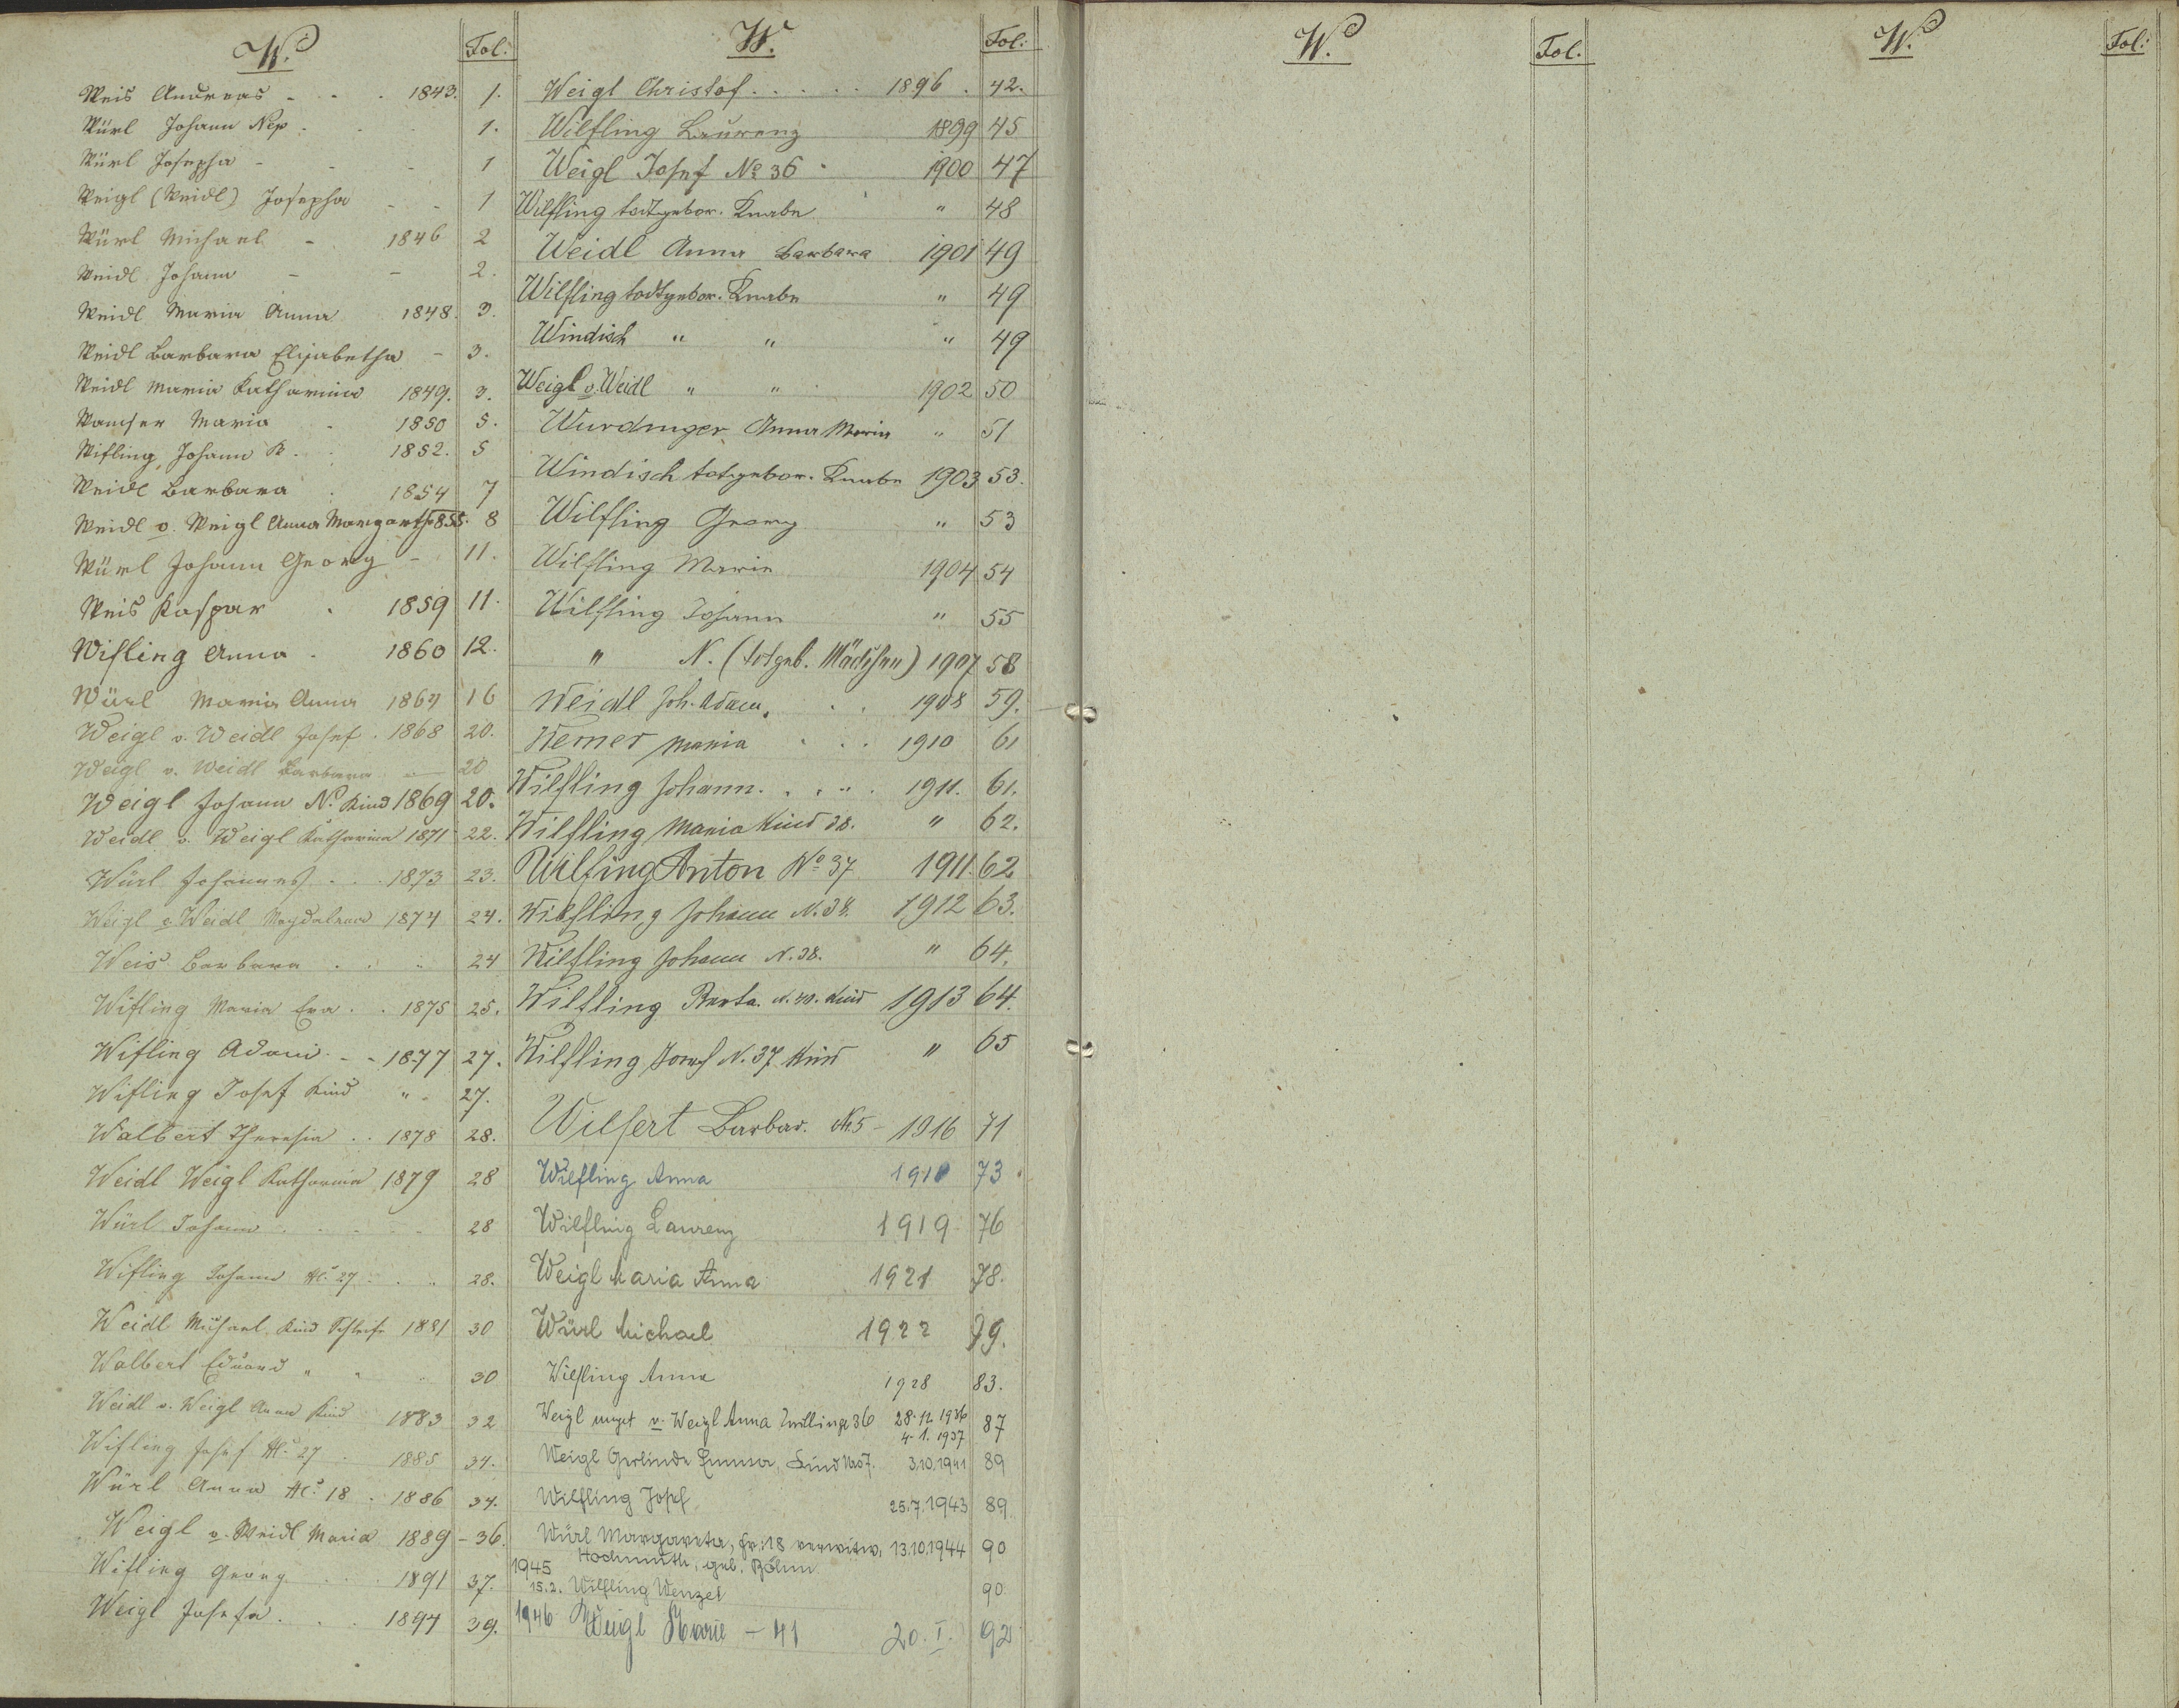 W. Fol:
Weis Andreas - - . 1843. 1.
Würl Johann Nep. 1.
Würl Josepha - - - 1
Weigl (Weidl) Josepha - - 1
Würl Michael - 1846 2
Weidl Johann - - 2.
Weidl Maria Anna 1848. 3.
Weidl Barbara Elisabetha - 3.
Weidl Maria Katharina 1849. 3.
Maria 1850 5.
Wifling Johann 1852. 5
Weidl Barbara 1854 7
Weidl v. Weigl Anna Margareth 1855. 8
Würl Johann Georg - 11.
Weis Kaspar . 1859 11.
Wifling Anna . 1860 12.
Würl Maria Anna 1864 16
Weigl v. Weidl Josef . 1868 20.
Weigl v. Weidl Barbara - 20
Weigl Johann No Kind 1869 20.
Weidl v. Weigl Katharina 1871 22.
Würl Johannes . . . 1873 23.
Weigl v. Weidl Magdalena 1874 24.
Weis Barbara . . " 24
Wifling Maria Eva . . 1875 25.
Wifling Adam - - 1877 27.
Wifling Josef Kind " - 27.
Walbert Theresia . . 1878 28.
Weidl Weigl Katharina 1879 28
Würl Johann 28
Wifling Johann No. 27 . . " 28.
Weidl Michael Kind Schleife 1881 30
Walbert Eduard " " " 30
Weidl v. Weigl Anna Kind 1883 32
Wifling Josef No. 27 . 1885 34.
Würl Anna No. 18 . 1886 34.
Weigl v. Weidl Maria 1889 - 36.
Wifling Georg . . . 1891 37.
Weigl Josefa . . . 1894 39.
W. Fol:
Weigl Christof . . . . . 1896 . 42.
Wilfling Laurenz 1899 45
Weigl Josef No 36 - 1900 47
Wilfling todtgebor. Knabe " 48
Weidl Anna Barbara 1901 49
Wilfling todtgebor. Knabe " 49
Windisch " " " 49
Weigl v. Weidl " " 1902 50
Wurdinger Anna Maria " 51
Windisch totgebor. Knabe 1903 53.
Wilfling Georg " 53
Wilfling Marie 1904 54
Wilfling Johann " 55
" N. (totgeb. Mädchen) 1907 58
Weidl Joh. Adam. . . 1908 59.
Werner Maria . . . 1910 61
Wilfling Johann. . . " . 1911. 61.
Wilfling Maria Kind 38. " 62.
Wilfing Anton No 37 1911. 62
Wilfling Johann N. 38. 1912 63.
Wilfling Johann N. 38. " 64.
Wilfling Berta. N. 40. Kind 1913 64.
Wilfling Josef N. 37 Kind " 65
Wilfert Barbar. No. 5 - 1916 71
Wilfling Anna 1918 73
Wilfling Laurenz 1919 76
Weigl Maria Anna 1921 78.
Würl Michael 1922 79.
Wilfling Anna 1928 83.
Weigl unget v. Weigl Anna Zwillinge 36 28.12.1936 87
4.1.1937
Weigl Gerlinde Emma, Kind No 7. 3.10.1941 89
Wilfling Josef 25.7.1943 89
Würl Margareta, Fr: 18 verwitw. 13.10.1944 90
Hochmuth, geb. Böhm
1945
15.2. Wilfling Wenzel 90
1946 Weigl Marie - 41 20. I. 92
W. Fol.
W. Fol: